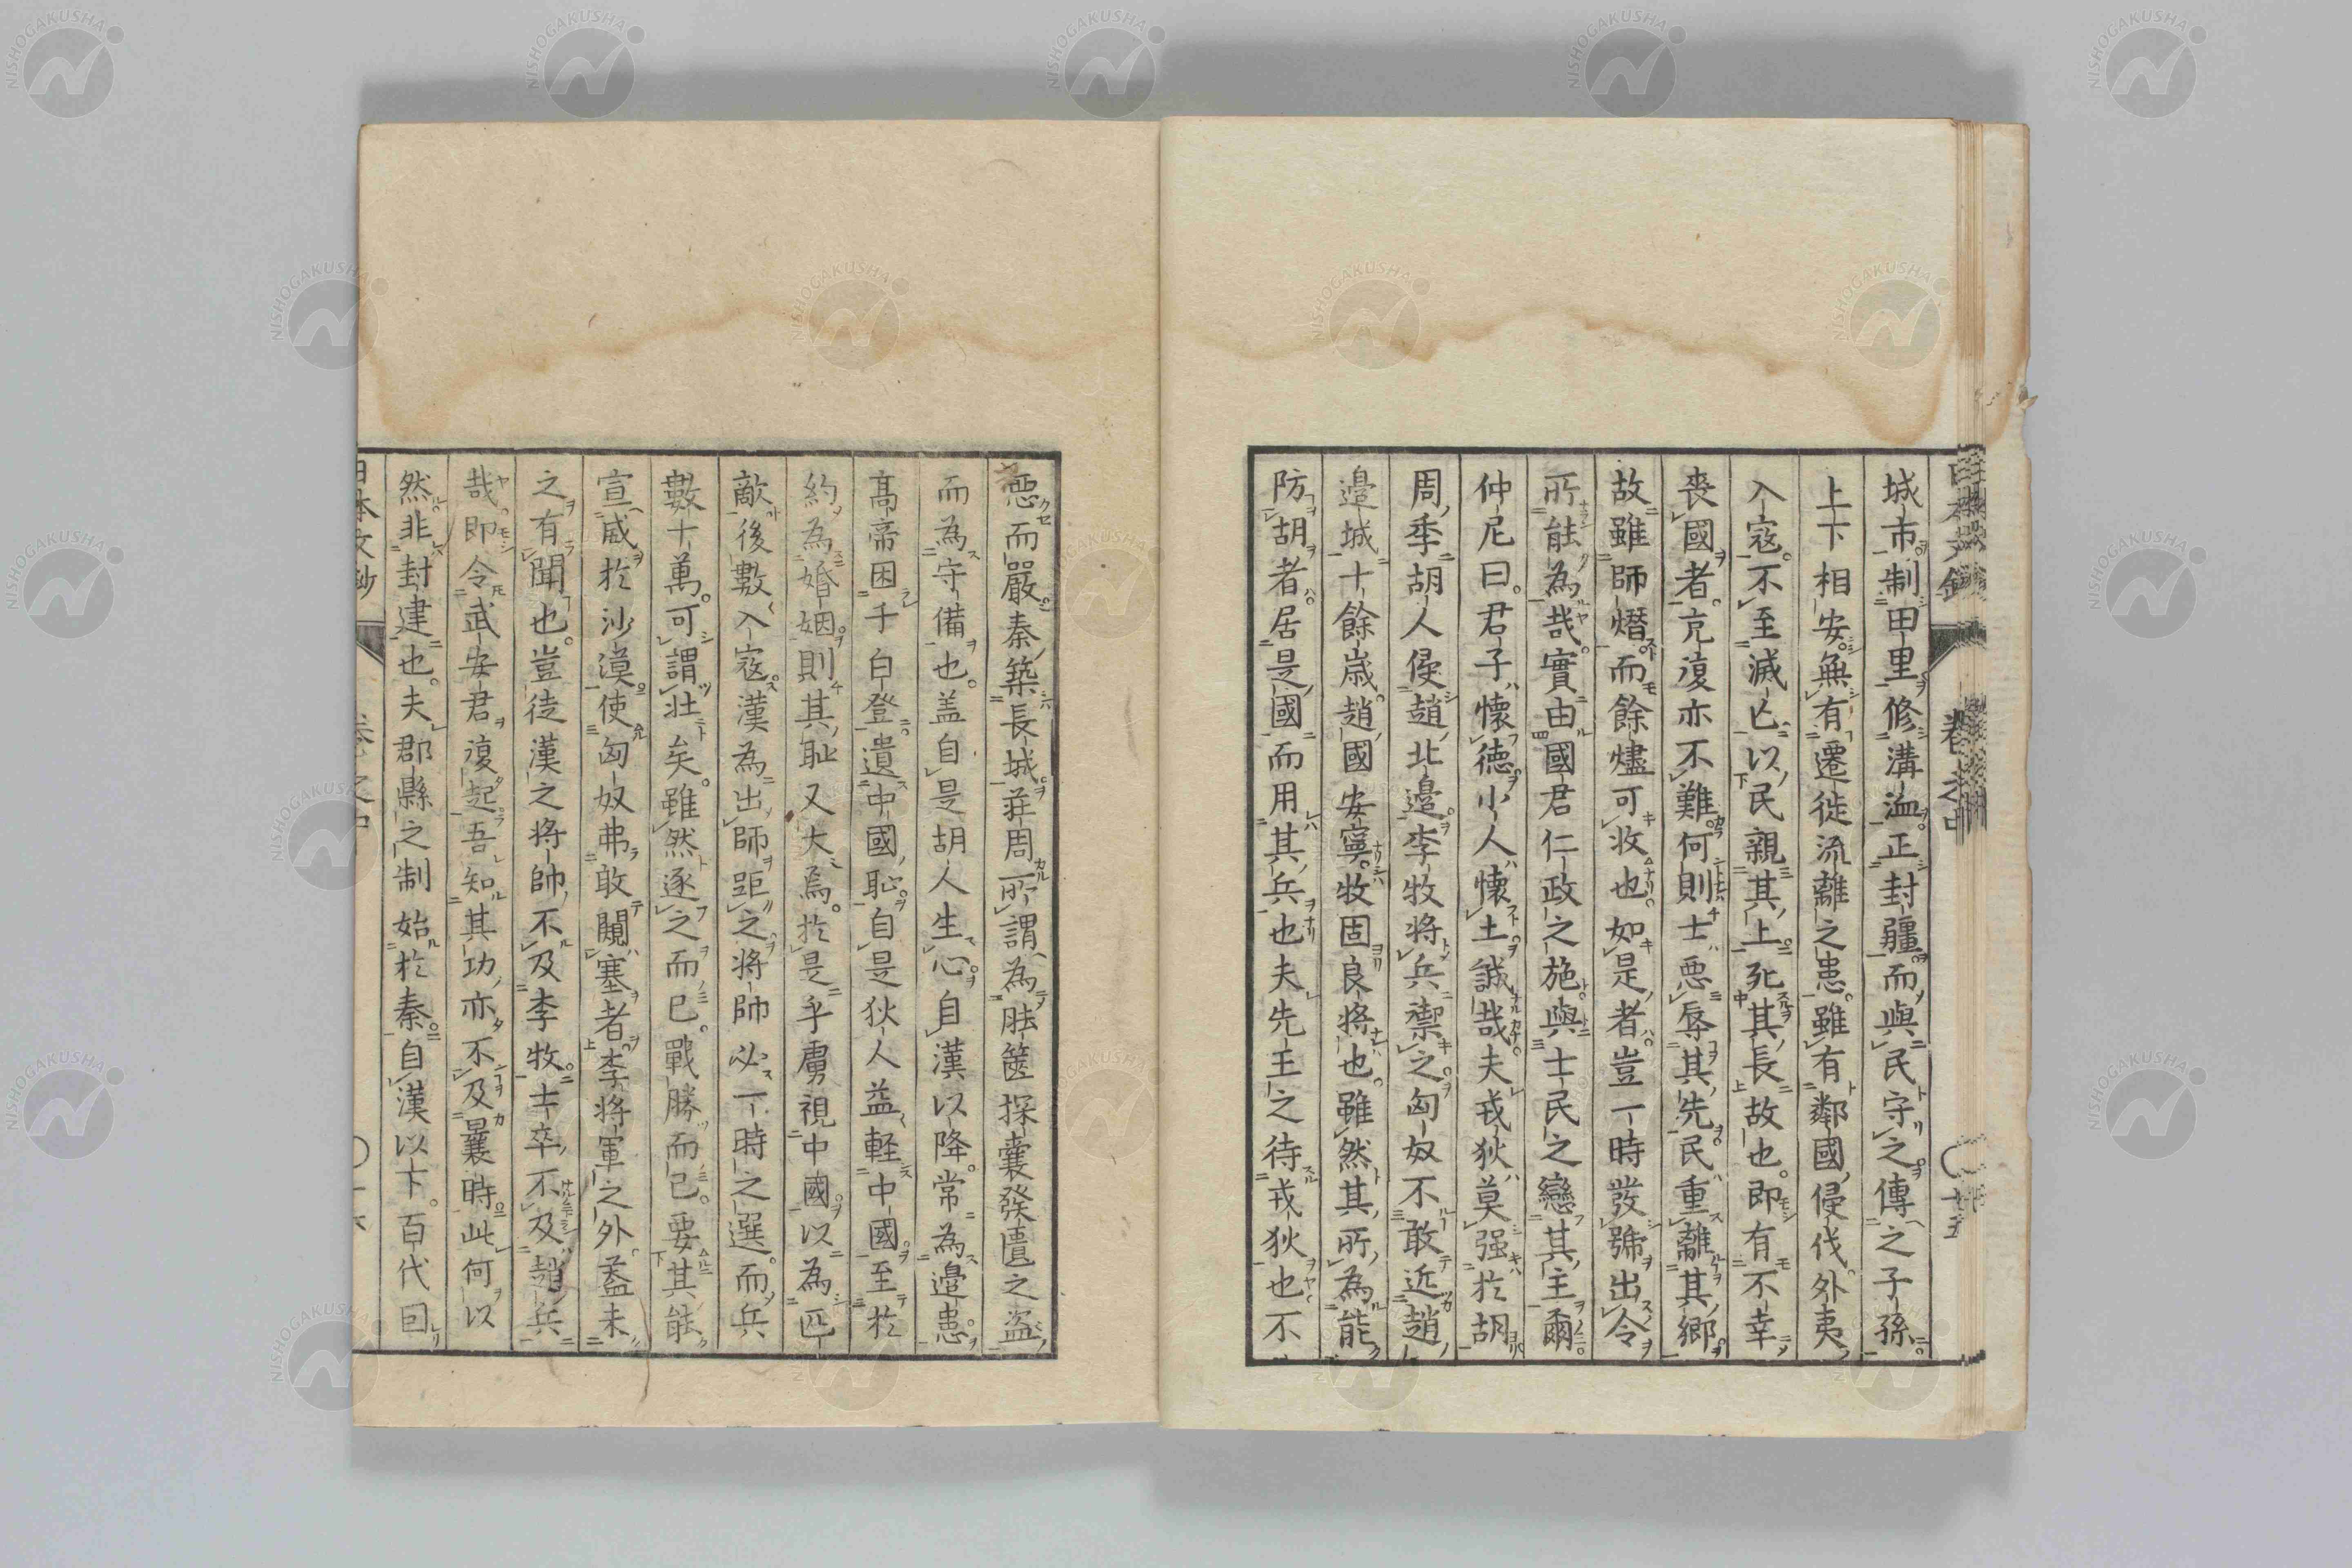 城市制田里修溝洫正封疆而與民守之傳之子孫
上下相安無有遷徙流離之患雖有鄰國侵伐外夷
入寇不至滅亡以民親其上死其長故也即有不幸
喪國者克復亦不難何則士惡辱其先民重離其鄉
故雖師熸而餘燼可收也如是者豈一時發號出令
所能為哉實由國君仁政之施與士民之戀其主爾
仲尼曰君子懷德小人懷土誠哉夫戎狄莫强於胡
周季胡人侵趙北邉李牧將兵禦之匈奴不敢近趙
邉城十餘歳趙國安寧牧固良將也雖然其所為能
防胡者居是國而用其兵也夫先王之待戎狄也不
惡而嚴秦築長城莊周所謂為胠篋探囊發匱之盗
而為守備也盖自是胡人生心自漢以降常為邉患
髙帝困于白登遺中國恥自是狄人益軽中國至於
約為婚姻則其耻又大焉於是乎虜視中國以為匹
敵後數入寇漢為出師距之將帥必一時之選而兵
數十萬可謂壮矣雖然逐之而已戰勝而已要其能
宣威於沙漠使匈奴弗敢闚塞者李將軍之外葢未
之有聞也豈徒漢之將帥不及李牧士卒不及趙兵
哉即令武安君復起吾知其功亦不及曩時此何以
然非封建也夫郡縣之制始於秦自漢以下百代回